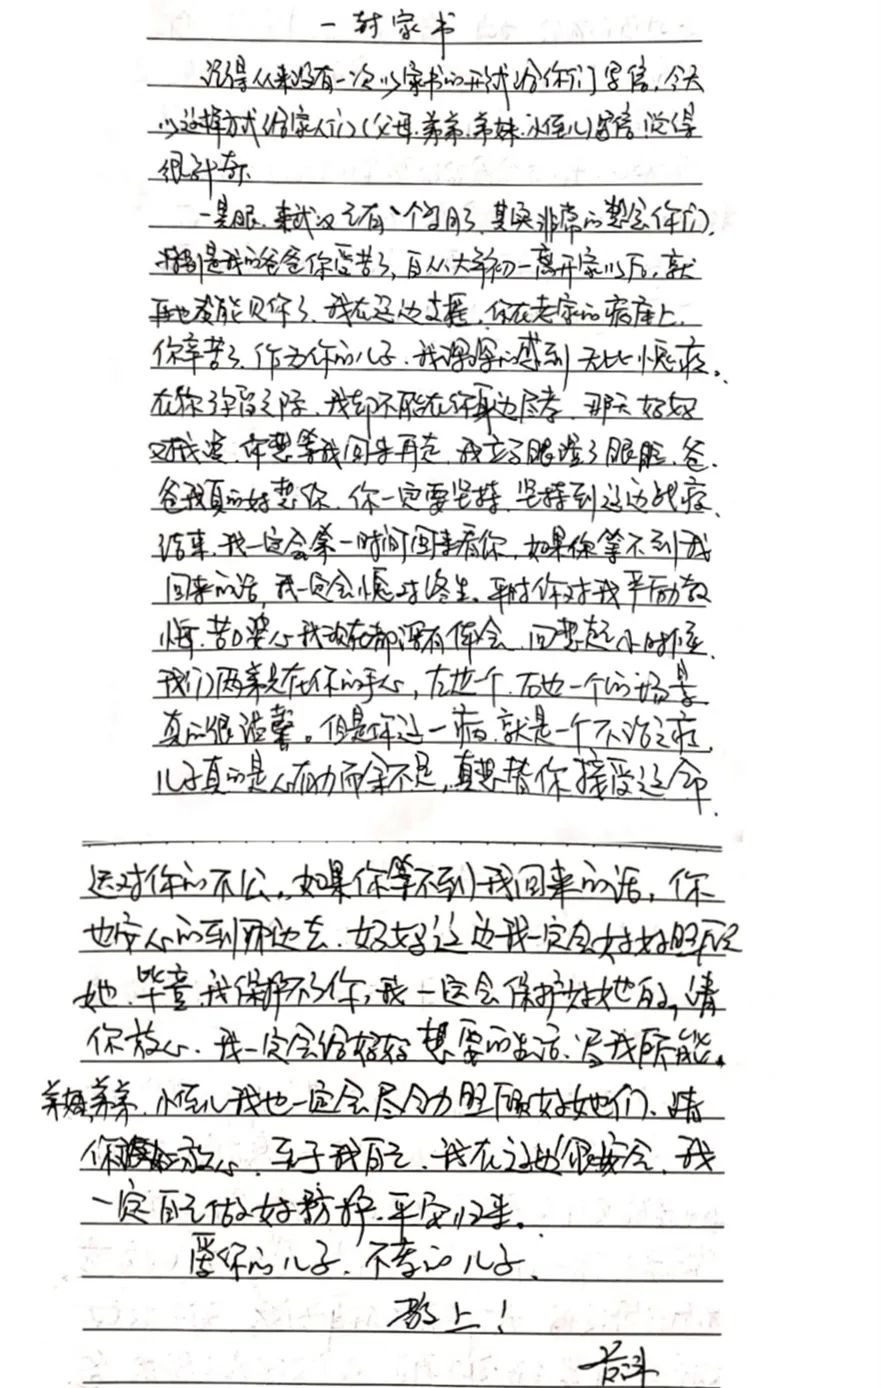 一封家书
记得从来没有一次以家书的形式给你们写信，今天
以这样方式给家人们（父母、弟弟、弟妹、小侄儿）写信觉得
很
一晃眼，来武汉已有一个多月了，其实非常的想念你们，
特别是我的爸爸你受苦了，自从大年初一离开家以后，就
再也没能见你了，我在这边支援，你在老家的病床上，
你辛苦了，作为你的儿子，我深深的感到无比愧疚。
在你弥留之际，我却不能在你身边尽孝，那天好好
对我说，你想等我回来再走，我立马眼湿了眼眶，爸
爸我真的好想你，你一定要坚持，坚持到这边战疫
结束，我一定会第一时间回来看你，如果你等不到我
回来的话，我一定会愧对终生。平时你对我辛勤教
悔，苦口婆心我现在都深有体会，回想起小时候，
我们俩亲在你的手心，左边一个，右边一个的场景
真的很温馨。但是你这一病，就是一个不治之症，
儿子真的是心有力而余不足，真想替你接受这命
运对你的不公，如果你等不到我回来的话，你
也安心的到那边去，好好这边我一定会好好照顾
她，毕竟我保护不了你，我一定会保护好她的，请
你放心，我一定会给好好想要的生活，尽我所能。
弟妹，弟弟，小侄儿我也一定会尽全力照顾好她们，请
你放心，至于我自己，我在这边很安全，我
一定自己做好防护，平安归来。
爱你的儿子，不孝的儿子，
敬上！